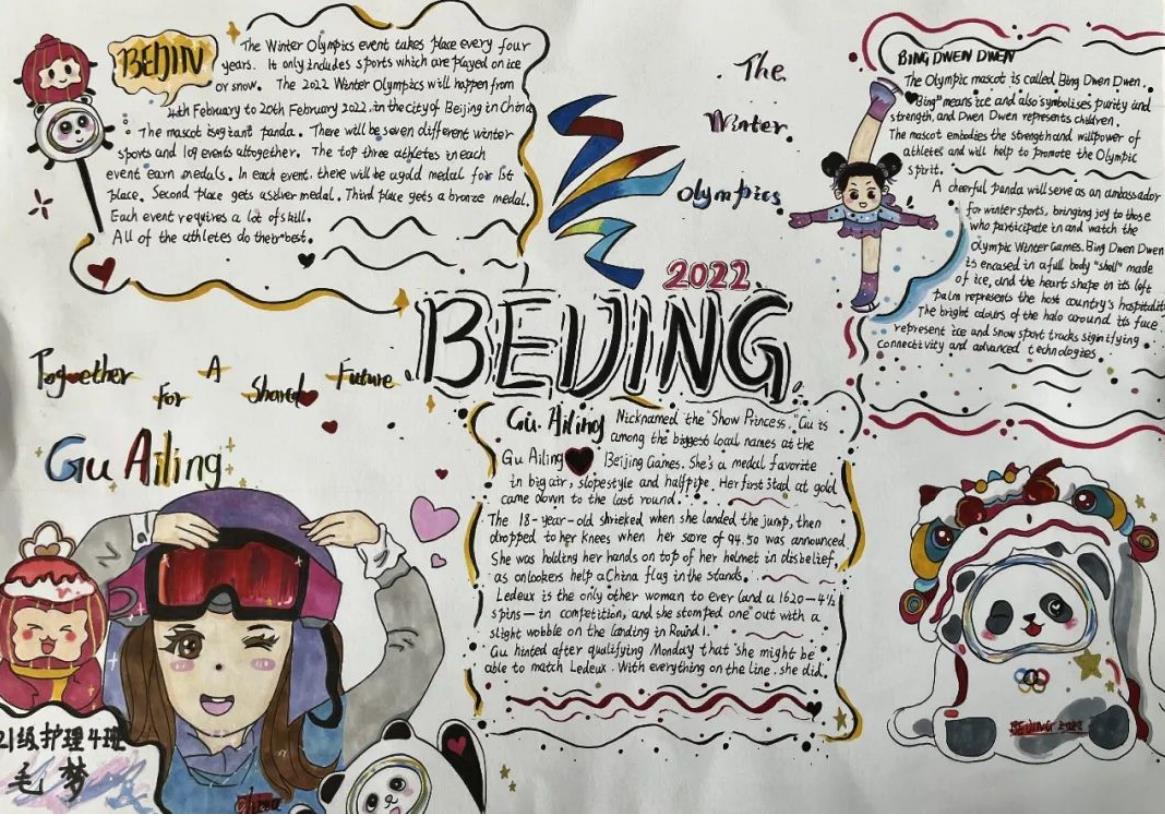 BEIJIN
The Winter Olympics event takes place every four
years. It only includes sports which are played on ice
or snow. The 2022 Winter Olymptics will happen from
4th February to 20th February 2022. in the city of Beijing in China
The mascot is giant panda. There will be seven different winter
sports and 109 events altogether. The top three athletes in each
event earn medals. In each event. there will be a gold medal for 1st
place. Second place gets a silver medal. Third place gets a bronze medal.
Each event requires a lot of skill.
All of the athletes do their best.
The
Winter
Olympics
2022
BEIJING
BING DWEN DWEN
The Olympic mascot is called Bing Dwen Dwen.
"Bing" means ice and also symbolises purity and
strength, and Dwen Dwen represents children.
The mascot embodies the strength and willpower of
athletes and will help to promote the Olympic
spirit.
A cheerful panda will serve as an ambassador
for winter sports, bringing joy to those
who participate in and watch the
Olympic Winter Games. Bing Dwen Dwen
is encased in a full body "shell" made
of ice, and the heart shape in its left
palm represents the host country's hospitalit
The bright colours of the halo around its face
represent ice and snow sport tracks signifying
connectivity and advanced technologies.
Together For A Shared Future
Gu Ailing
Gu. Ailing
Nicknamed the "Show Princess," Gu is
among the biggest local names at the
Gu Ailing Beijing Games. She's a medal favorite
in big air, slopestyle and halfpipe. Her first stad at gold
came down to the last round.
The 18-year-old shrieked when she landed the jump, then
dropped to her knees when her score of 94.50 was announced
She was holding her hands on top of her helmet in disbelief,
as onlookers help a China flag in the stands.
Ledeux is the only other woman to ever land a 1620-4½
spins-in competition, and she stomped one out with a
slight wobble on the landing in Round 1.
Gu hinted after qualifying Monday that she might be
able to match Ledeux. With everything on the line, she did.
21级护理4班
毛梦
China
BEIJING 2022